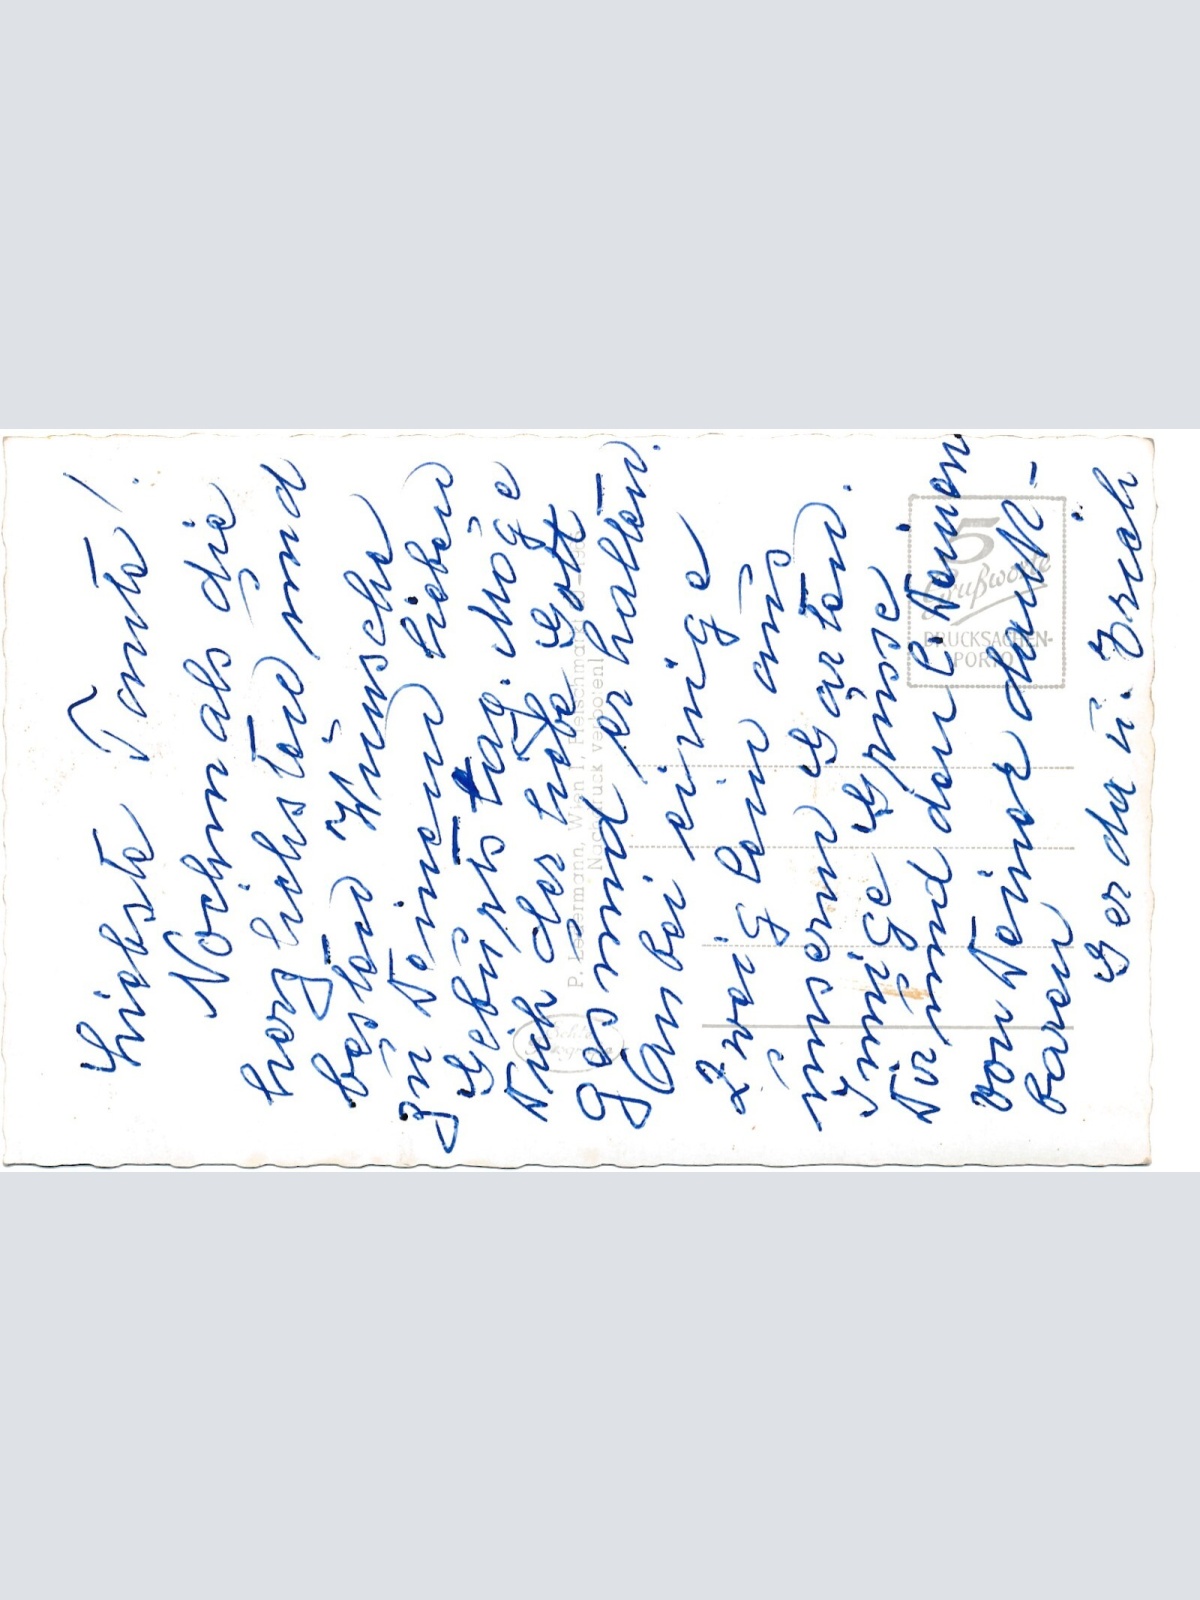 Liebste Tante!
Nochmals die
herzlichsten und
besten Wünsche
zu Deinem lieben
Geburtstag. Möge
Dich der liebe Gott
gesund erhalten.
Anbei einige
Zweiglein aus
unserm Garten.
Innige Grüsse
Dir und den l. Deinen
von Deiner dank-
baren
Gerda u. Erich
P. Ledermann, Wien I, Fleischmarkt
Nachdruck verboten!
5
Grußworte
DRUCKSACHEN-
PORTO